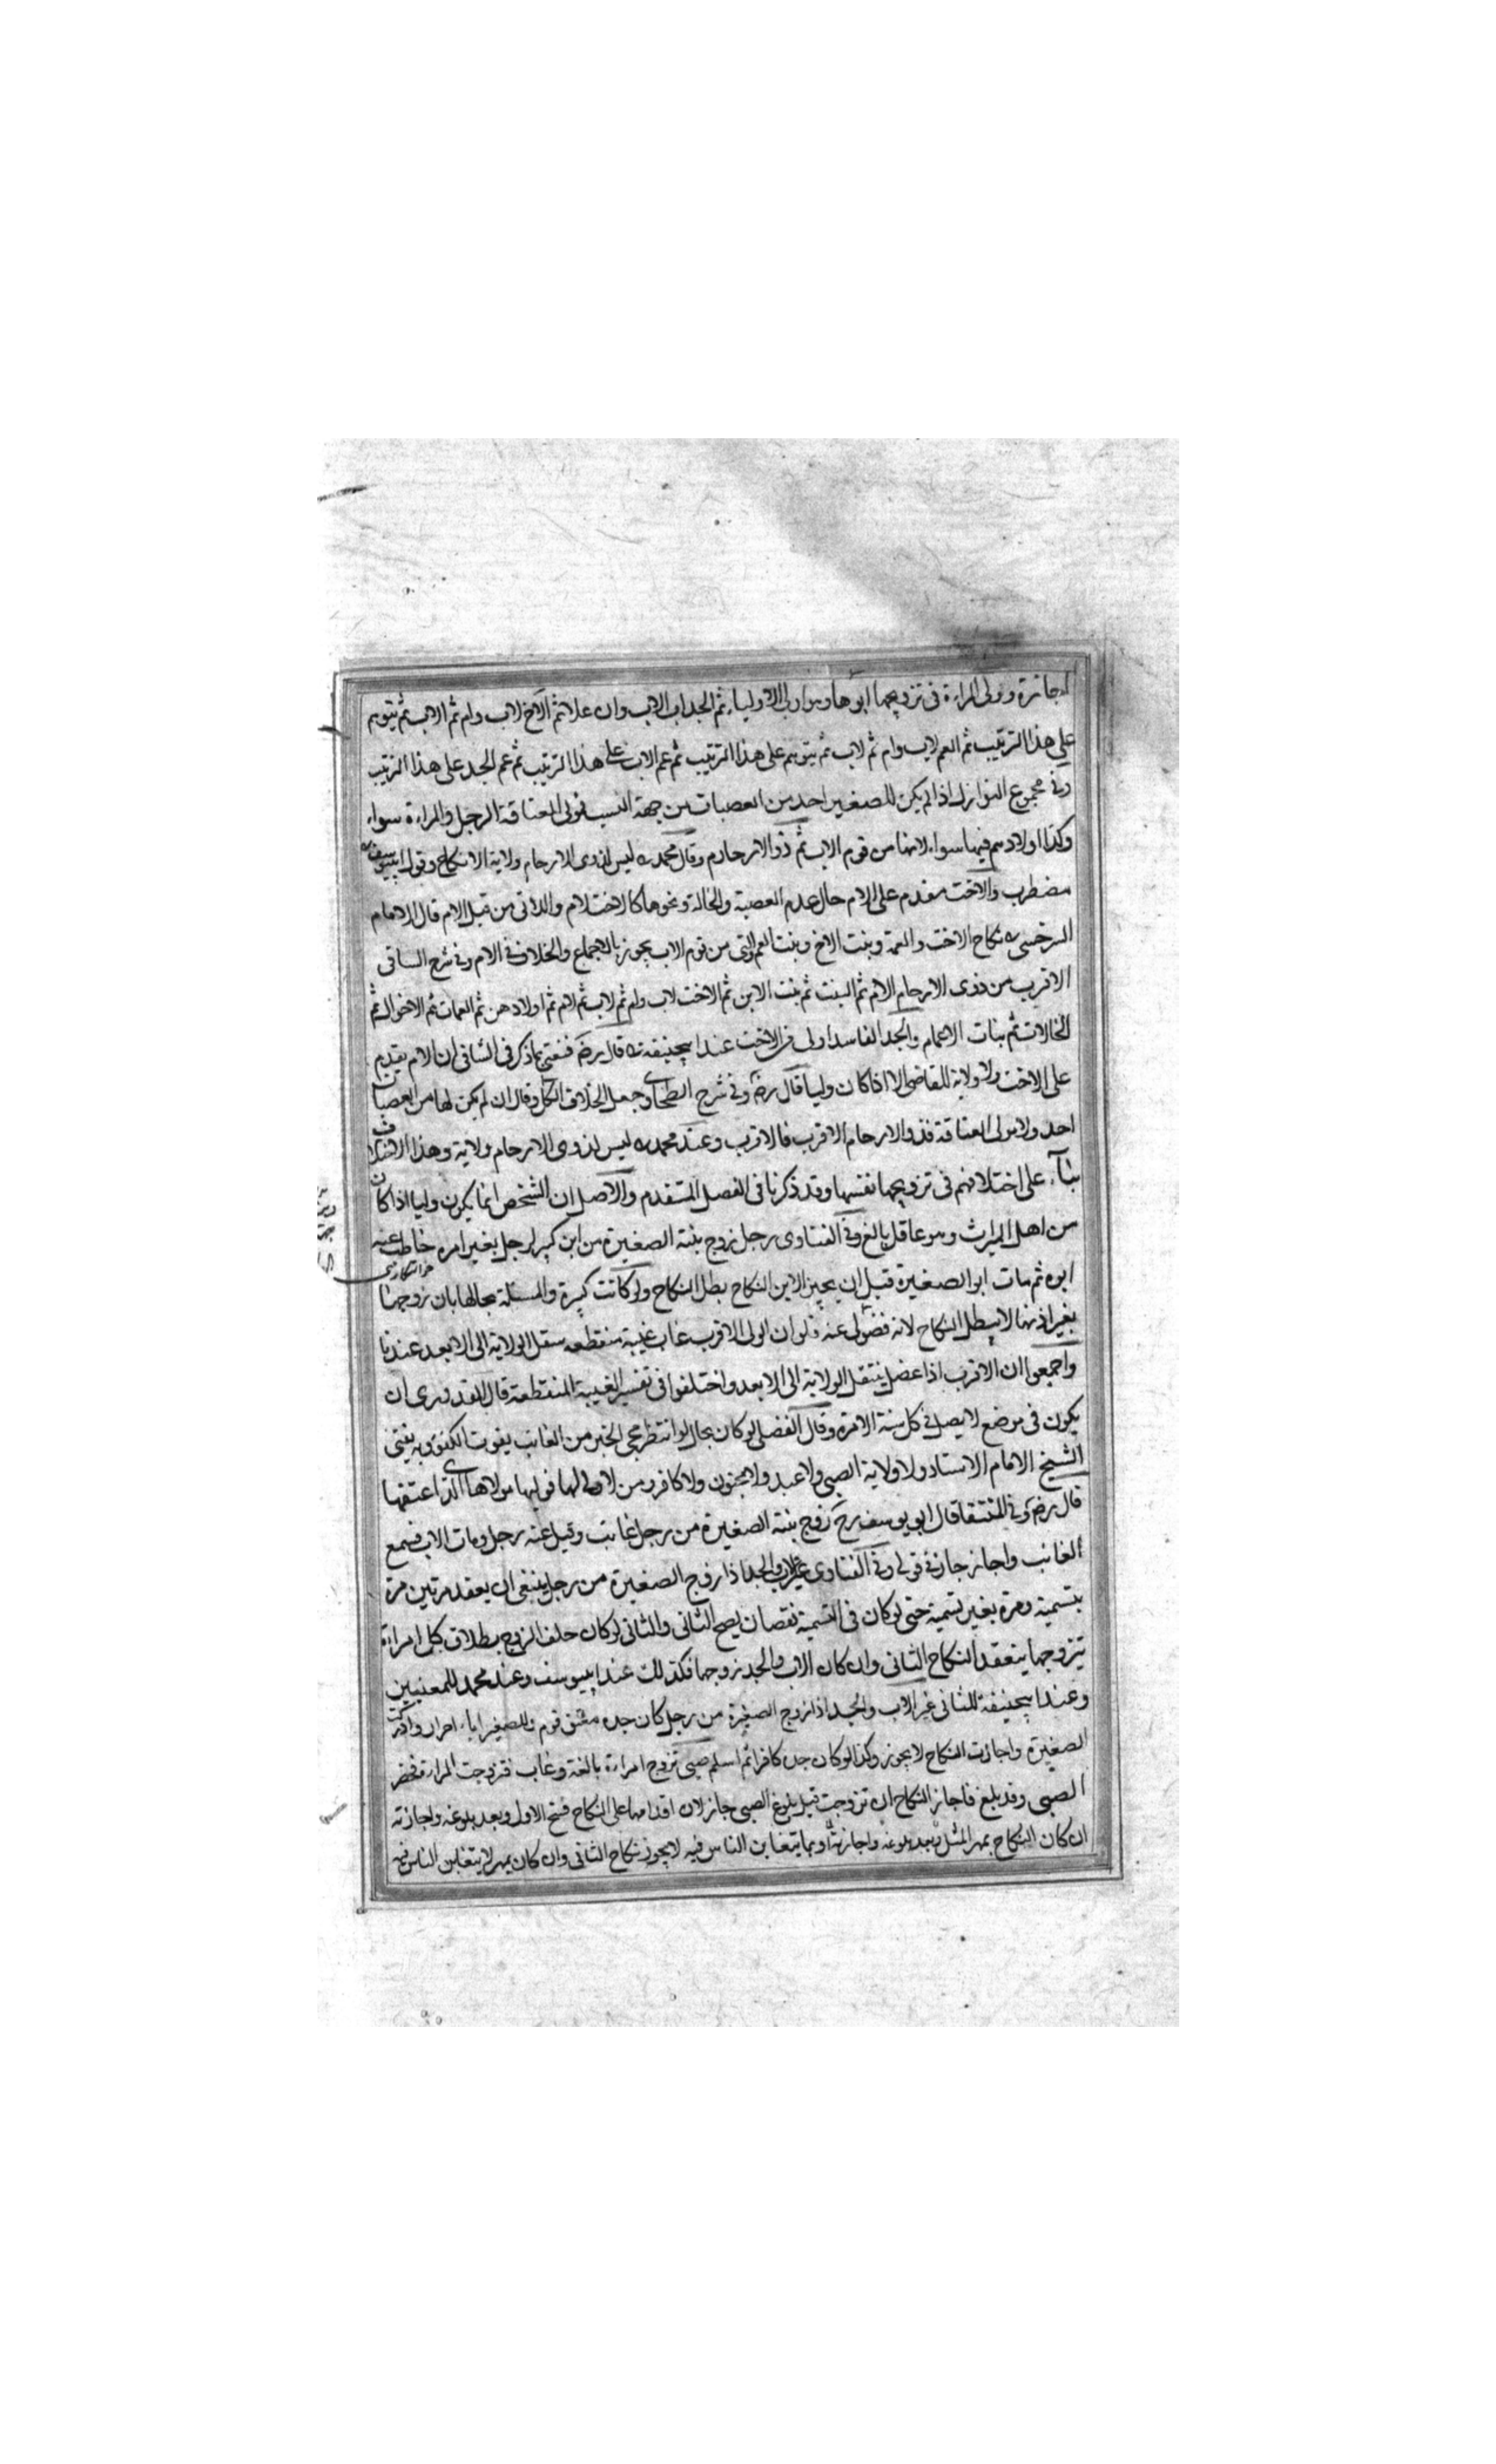 اجازة وولى المراءة فى تزويجها ابوها وهو اولى الاولياء ثم الجد اب الاب وان علا ثم الاخ لاب وام ثم لاب ثم بنوهم
على هذا الترتيب ثم العم لاب وام ثم لاب ثم بنوهم على هذا الترتيب ثم عم الاب على هذا الترتيب ثم عم الجد على هذا الترتيب
وفى مجموع النوازل اذا لم يكن للصغير احد من العصبات من جهة النسب فمولى العتاقة الرجل والمراءة سواء
وكذا اولادهم فيها سواء لانها من قوم الاب ثم ذو الارحام وقال محمد ره ليس لذوى الارحام ولاية الانكاح وقول ابييوسف ره
مضطرب والاخت مقدم على الام حال عدم العصبة والخالة ونحوها كالاخت لام والذى من قبل الام قال الامام
السرخسى ره نكاح الاخت والعمة وبنت الاخ وبنت العم والتى من قوم الاب يجوز بالاجماع والخلاف فى الام وفى شرح الساقى
الاقرب من ذوى الارحام الام ثم البنت ثم بنت الابن ثم الاخت لاب وام ثم لاب ثم لام ثم اولادهن ثم العمات ثم الاخوال ثم
الخالات ثم بنات الاعمام والجد الفاسد اولى من الاخت عند ابيحنيفة ره قال رض فنفتى بما ذكر فى الشافى ان الام يقدم
على الاخت ولا ولاية للقاضى الا اذا كان وليا قال رض وفى شرح الطحاوى جعل الخلاف فى الكل وقال ان لم يكن لها من العصبات
احد ولا مولى العتاقة فذو الارحام الاقرب فالاقرب وعند محمد ره ليس لذوى الارحام ولاية وهذا الاختلاف
بناء على اختلافهم فى تزويجها نفسها وقد ذكرنا فى الفصل المتقدم والاصل ان الشخص انما يكون وليا اذا كان
من اهل الميراث وهو عاقل بالغ وفى الفتاوى رجل زوج بنته الصغيرة من ابن كبير لرجل بغير امره خاطب عنه
ابوه ثم مات ابو الصغيرة قبل ان يجيز الابن النكاح بطل النكاح ولو كانت كبيرة والمسئلة بحالها بان زوجها
بغير اذنها لا يبطل النكاح لانه فضولى عنه ولو ان الولى الاقرب غاب غيبة منقطعة ينتقل الولاية الى الابعد عندنا
واجمعوا ان الاقرب اذا عضل ينتقل الولاية الى الابعد واختلفوا فى تفسير الغيبة المنقطعة قال القدورى ان
يكون فى موضع لا يصل فى كل سنة الا مرة وقال الفضلى لو كان بحال لو انتظر مجى الخبر من الغائب يفوت الكفو وبه يفتى
الشيخ الامام الاستاد ولا ولاية الصبى ولا عبد ولا مجنون ولا كافر ومن لا ولى لها فوليها مولاها الذى اعتقها
قال رض وفى المنتقا قال ابو يوسف رح زوج بنته الصغيرة من رجل غائب وقبل عنه رجل ومات الاب فسمع
الغائب واجاز جاز فى قولى وفى الفتاوى غير الاب والجد اذا زوج الصغيرة من رجل ينبغى ان يعقد مرتين مرة
بتسمية ومرة بغير تسمية حتى لو كان فى التسمية نقصان يصح الثانى والثانى لو كان حلف الزوج بطلاق كل امراءة
يتزوجها ينعقد النكاح الثانى وان كان الاب والجد زوجها فكذلك عند ابييوسف وعند محمد للمعنيين
وعند ابيحنيفة للثانى غير الاب والجد اذا زوج الصغيرة من رجل كان جده معتق قوم وللصغير اباء احرار وادركت
الصغيرة واجازت النكاح لا يجوز وكذا لو كان جده كافرا ثم اسلم صبى تزوج امراءة بالغة وغاب فتزوجت المراءة فحضر
الصبى وقد بلغ فاجاز النكاح ان تزوجت قبل بلوغ الصبى جاز لان اقدامها على النكاح فسخ الاول وبعد بلوغه واجازته
ان كان النكاح بمهر المثل بعد بلوغه واجازته او بما يتغابن الناس فيه لا يجوز نكاح الثانى وان كان بمهر لا يتغابن الناس فيه